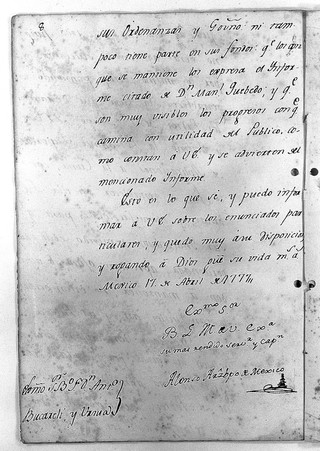 8
sus Ordenanzas y Govño: ni tam
poco tiene parte en sus fondos; q.e los con
que se mantiene los expresa el Infor-
me citado de Dn Man.l Quebedo, y q.e
son muy visibles los progresos con q.e
camina con utilidad del Publico, co-
mo constan à VE. y se advierten del
mencionado Informe
Esto es lo que sè, y puedo infor
mar à VE sobre los enunciados par
ticulares, y quedo muy à su disposicion
y rogando à Dios gũe su vida m.s a.s
Mexico 17. de Abril de 1777
Exmo S.or
B L M de V. Exa
su mas rendido serv.r y Capn
Alonso Arzbpo de Mexico
Exmo S.r B.o F. Dn Anto
Bucareli, y Ursua